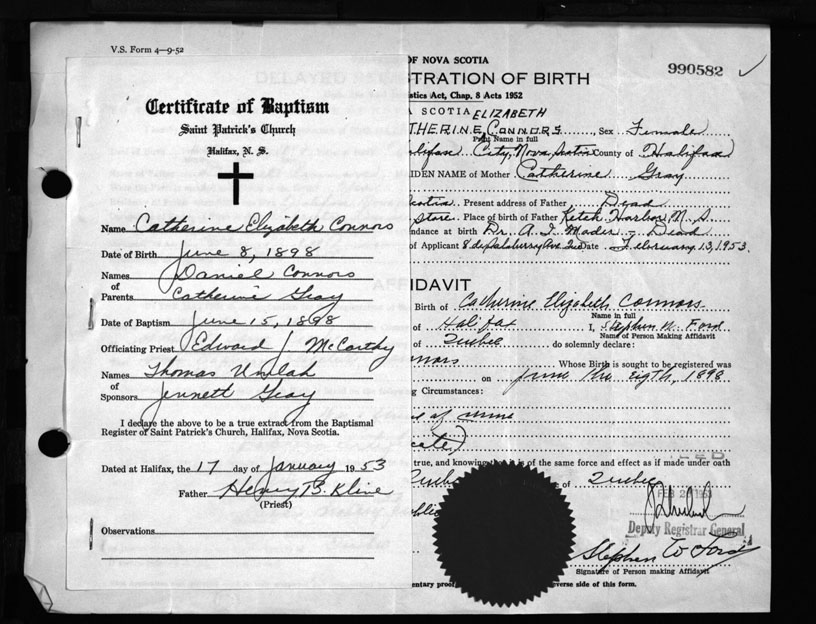 V.S. Form 4—9-52
Certificate of Baptism
Saint Patrick's Church
Halifax, N. S.
Name Catherine Elizabeth Connors
Date of Birth June 8, 1898
Names Daniel Connors
of
Parents Catherine Gray
Date of Baptism June 15, 1898
Officiating Priest Edward J McCarthy
Names Thomas
of
Sponsors Jennett Gray
I declare the above to be a true extract from the Baptismal
Register of Saint Patrick's Church, Halifax, Nova Scotia.
Dated at Halifax, the 17 day of January 1953
Father Henry B. Kline
(Priest)
Observations
OF NOVA SCOTIA
990582
TRATION OF BIRTH
istics Act, Chap. 8 Acts 1952
A SCOTIA ELIZABETH
THERINE, CONNORS, Sex Female
Print Name in full
alifax City, Nova Scotia County of Halifax
IDEN NAME of Mother Catherine Gray
Scotia. Present address of Father Dead
store. Place of birth of Father Ketch Harbor N. S.
ndance at birth Dr. A. I. Mader - Dead
of Applicant 8 Ave Date February 13, 1953.
FFIDAVIT
Birth of Catherine Elizabeth Connors
Name in full
of Halifax I, Stephen W. Ford
Name of Person Making Affidavit
of Quebec do solemnly declare:
nnors Whose Birth is sought to be registered was
on June the eigth, 1898
g Circumstances:
of mine
cate)
true, and knowing that it is of the same force and effect as if made under oath
of Quebec
FEB 1953
Deputy Registrar General
Stephen W Ford
Signature of Person making Affidavit
entary proof verse side of this form.